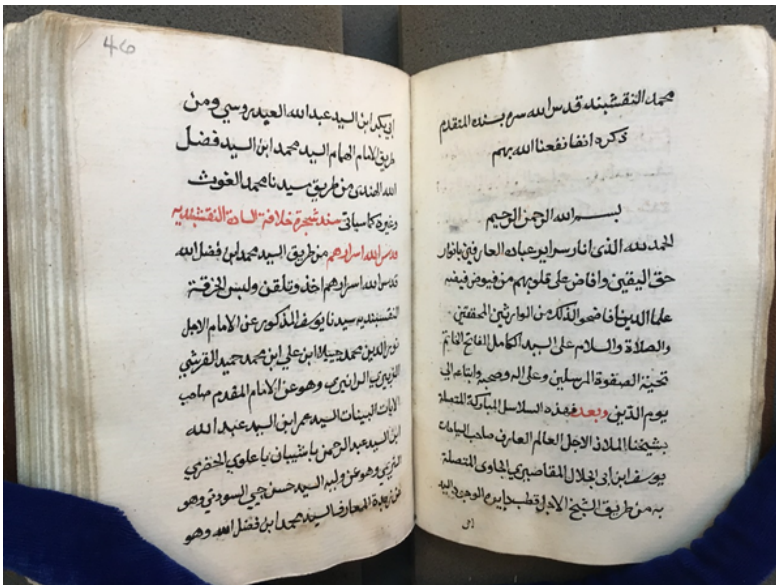 محمد النقشبند قدس الله سره بسنده المتقدم
ذكره انفا نفعنا الله بهم
بسم الله الرحمن الرحيم
الحمد لله الذي انار سراير عباده العارفين بانوار
حق اليقين وافاض على قلوبهم من فيوض فيضه
علما لدنيا فاضحوا لذلك من الوارثين المحققين
والصلاة والسلام على السيد الكامل الفاتح الخاتم
تحيته الصفوة المرسلين وعلى اله وصحبه واتباعه الى
يوم الدين وبعد فهذه السلاسل المباركة المتصلة
بشيخنا الملاذ الاجل العالم العارف صاحب
يوسف ابن ابي الجلال المقاصيري الجاوي المتصلة
به من طريق الشيخ الاجل قطب دايرة الوجود السيد
ابي
46
ابي بكر ابن السيد عبد الله العيدروسي ومن
طريق الامام الهمام السيد محمد ابن السيد فضل
الله الهندي من طريق سيدنا محمد الغوث
وغيره كما سياتي سند شجرة خلافة السادة النقشبنديه
قدس الله اسرارهم من طريق السيد محمد ابن فضل الله
قدس الله اسرارهم اخذ وتلقن ولبس الخرقة
النقشبنديه سيدنا يوسف المذكور عن الامام الاجل
نور الدين محمد جيلاد ابن علي ابن محمد حميد القرشي
الزبيري الرانيري وهو عن الامام المقدم صاحب
الايات البينات السيد عمر ابن السيد عبد الله
ابن السيد عبد الرحمن باشيبان باعلوي الحضرمي
التريمي وهو عن السيد حسن جي السودي وهو
عن زبدة المعارف السيد محمد ابن فضل الله وهو